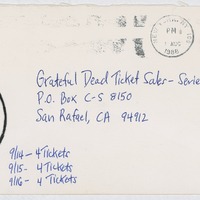 PM
1 AUG
1988
Grateful Dead Ticket Sales-Service
P.O. Box C-S 8150
San Rafael, CA 94912
9/14- 4 Tickets
9/15- 4 Tickets
9/16- 4 Tickets